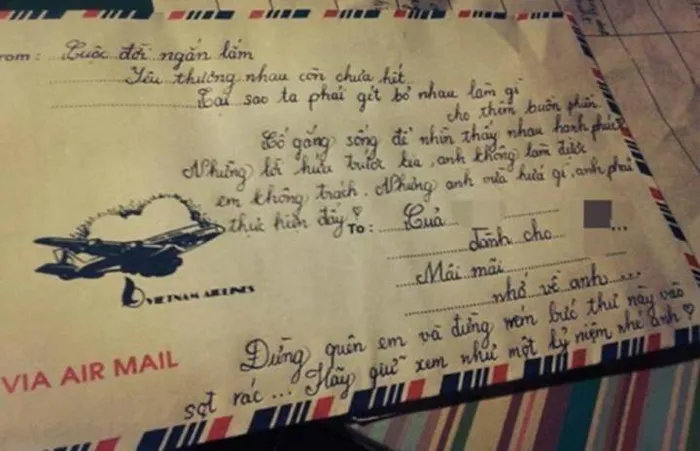 From: Cuộc đời ngắn lắm
Yêu thương nhau còn chưa hết
Tại sao ta phải gét bỏ nhau làm gì
cho thêm buồn phiền
Cố gắng sống để nhìn thấy nhau hạnh phúc
Những lời hứa trước kia, anh không làm được
em không trách. Nhưng anh vừa hứa gì, anh phải
thực hiện đấy
To: Của
dành cho ...
Mãi mãi
nhớ về anh...
VIETNAM AIRLINES
VIA AIR MAIL
Đừng quên em và đừng ném bức thư này vào
sọt rác... Hãy giữ xem như một kỷ niệm nhé anh